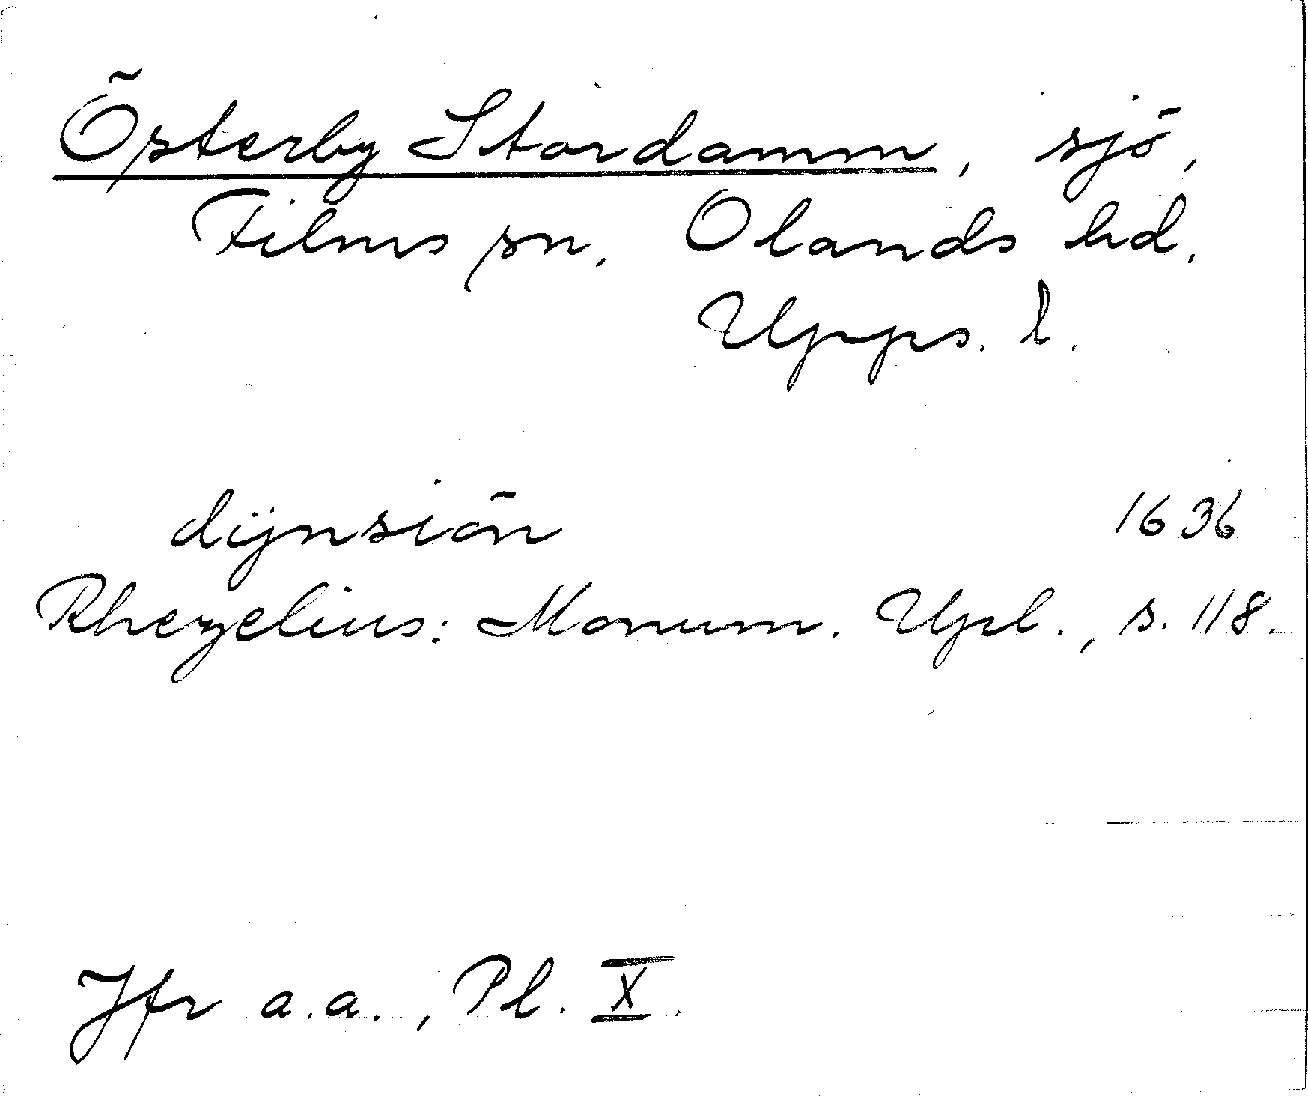 Österby Stordamm, sjö,
Films sn, Olands hd.
Upps. l.
dijnsiön 1636
Rhezelius: Monum. Upl., s. 118.
Jfr a.a., Pl. X.